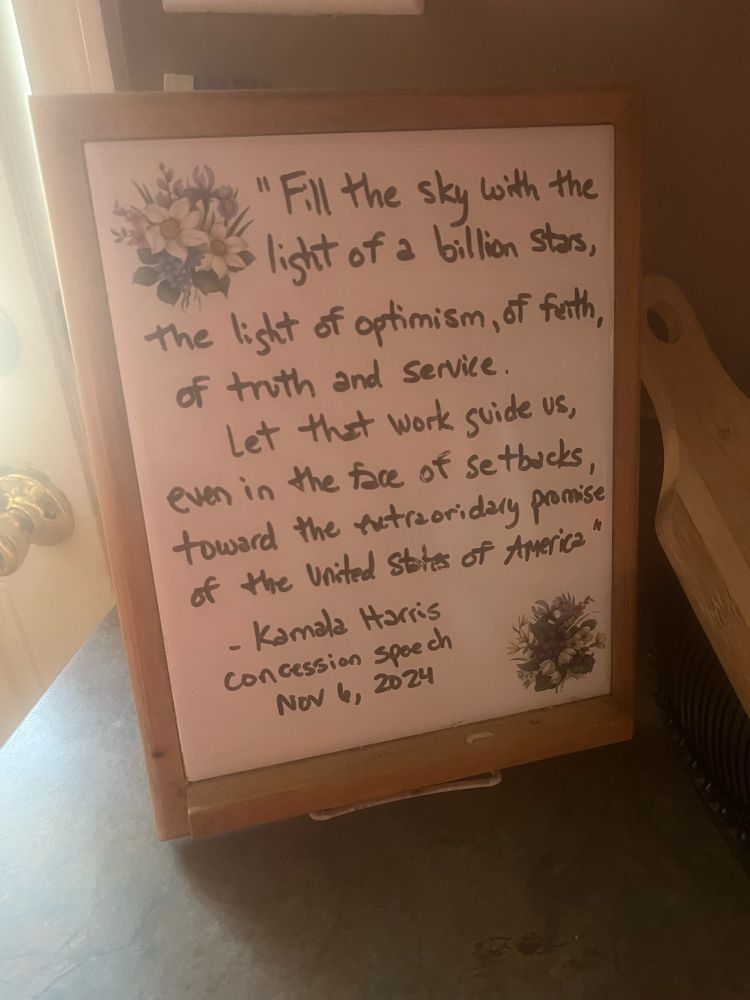 "Fill the sky with the
light of a billion stars,
the light of optimism, of faith,
of truth and service.
Let that work guide us,
even in the face of setbacks,
toward the extraoridary promise
of the United States of America"
- Kamala Harris
concession speech
Nov 6, 2024